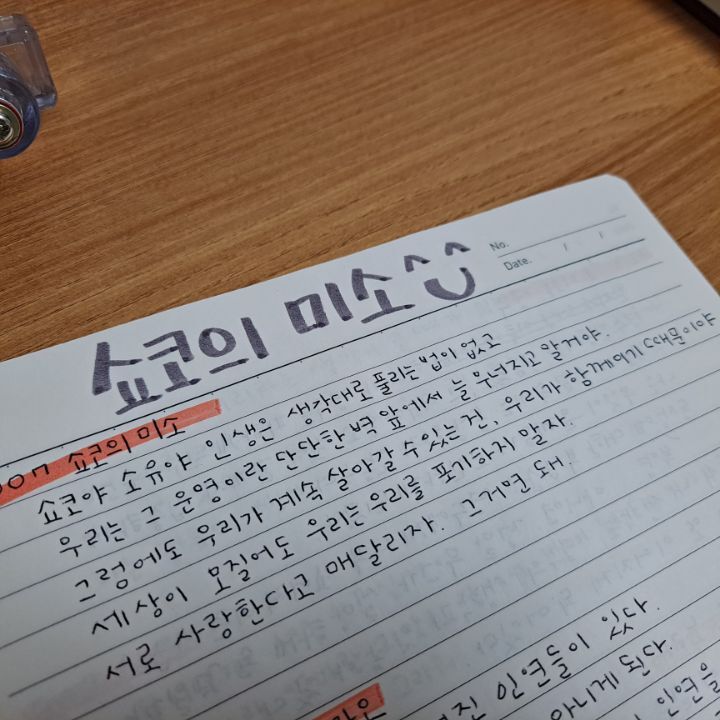 No.
Date.
쇼코의 미소^^
쇼코의 미소
쇼코야 소유야 인생은 생각대로 풀리는 법이 없고
우리는 그 운명이란 단단한 벽 앞에서 늘 무너지고 말거야.
그럼에도 우리가 계속 살아갈 수 있는 건, 우리가 함께이기 때문이야
세상이 모질어도 우리는 우리를 포기하지 말자.
서로 사랑한다고 매달리자. 그거면 돼.
인연들이 있다.
아니게 된다.
인연을